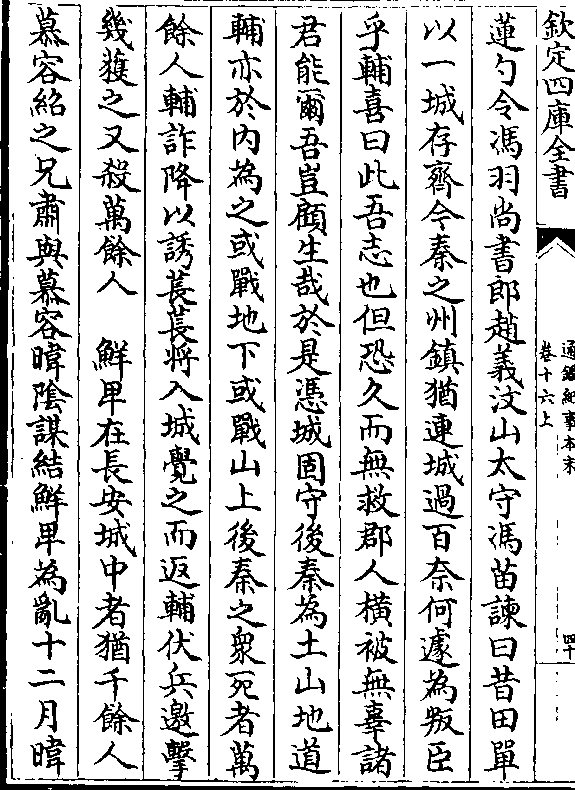 欽定四庫全書
通鑑紀事本末
卷十六上
四十
蓮勺令馮羽尚書郎趙義汶山太守馮苗諫曰昔田單
以一城存齊今秦之州鎮猶連城過百奈何遽為叛臣
乎輔喜曰此吾志也但恐久而無救郡人横被無辜諸
君能爾吾豈顧生哉於是憑城固守後秦為土山地道
輔亦於内為之或戰地下或戰山上後秦之衆死者萬
餘人輔詐降以誘萇萇將入城覺之而返輔伏兵邀擊
幾獲之又殺萬餘人　鮮卑在長安城中者猶千餘人
慕容紹之兄肅與慕容暐陰謀結鮮卑為亂十二月暐